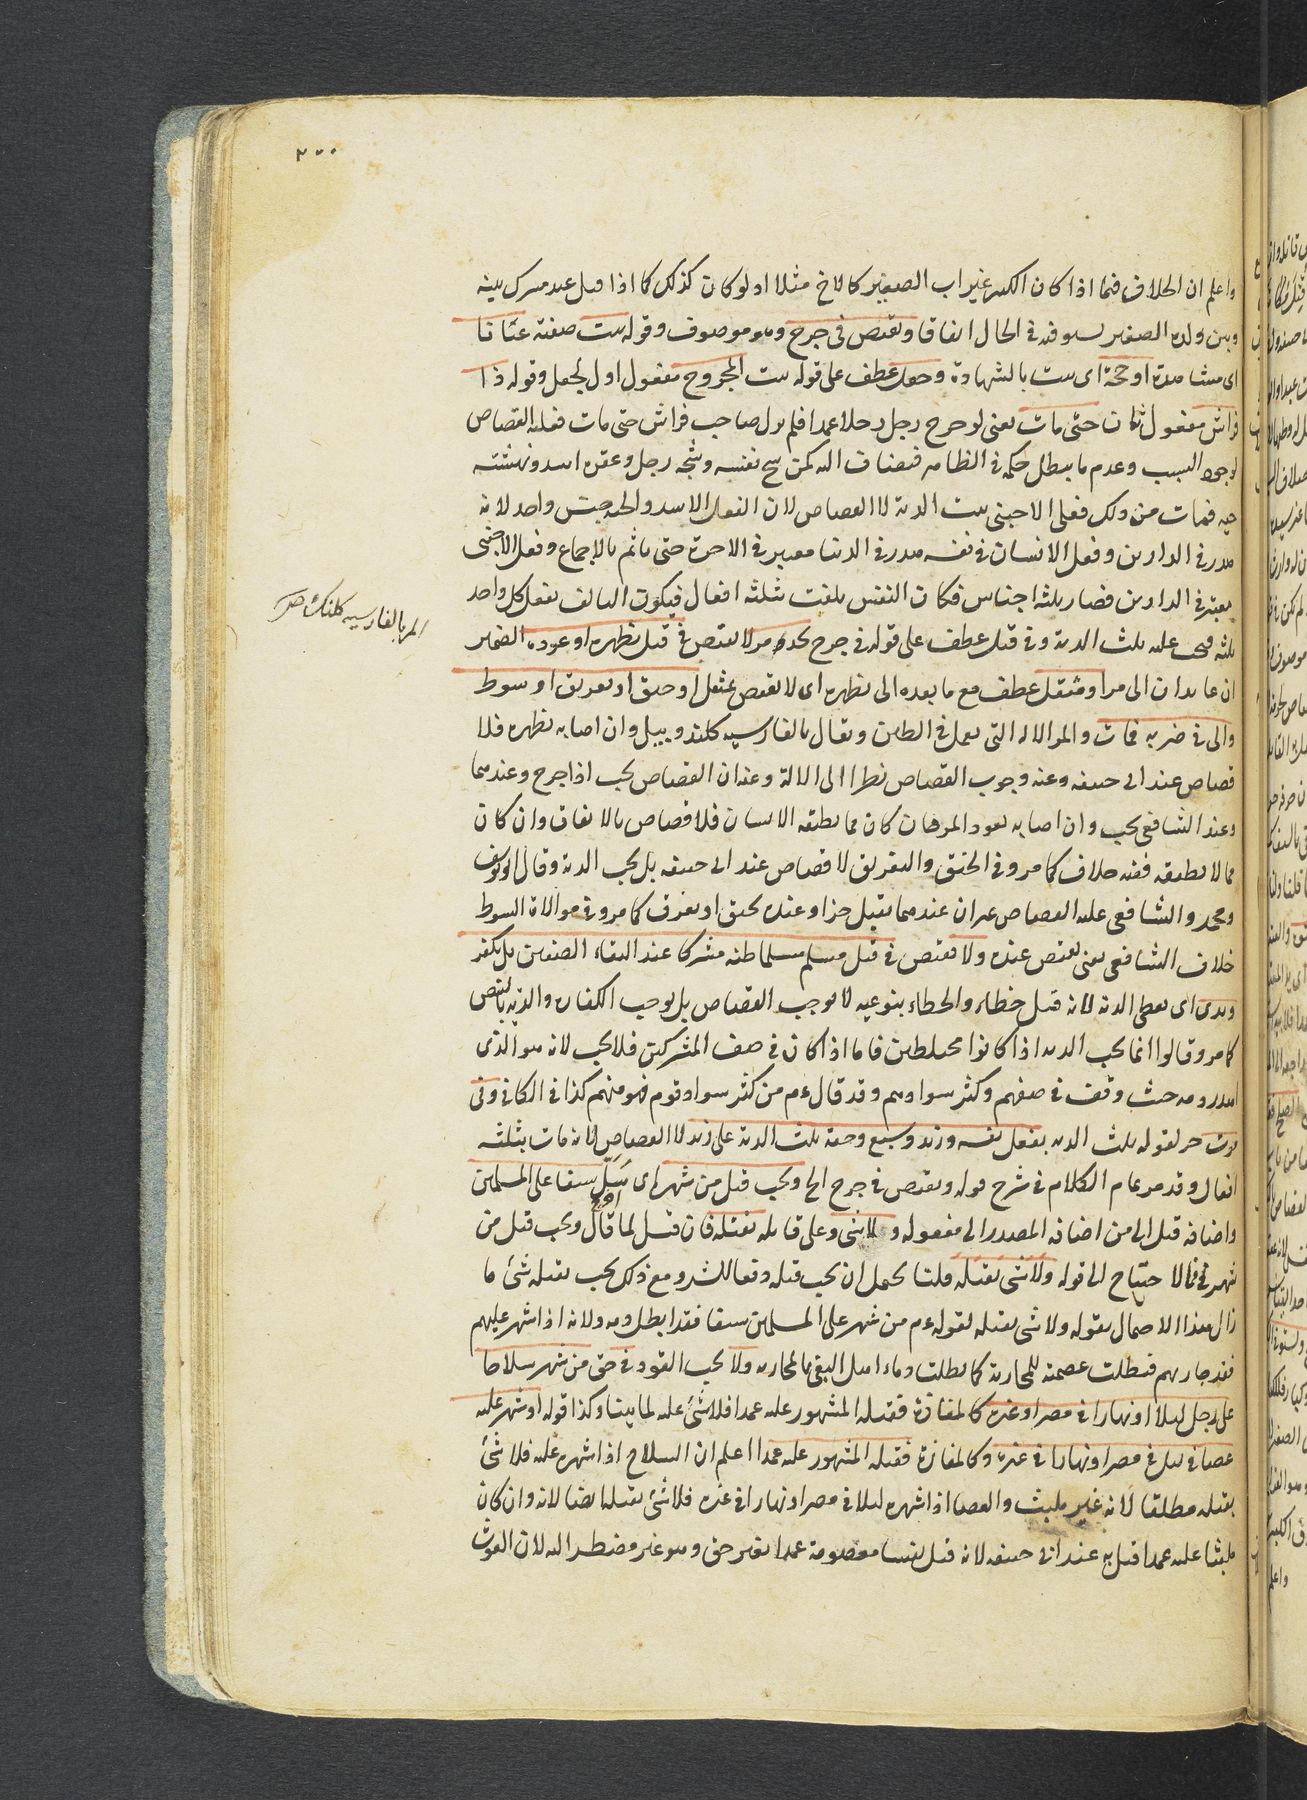 ٢٠٠
واعلم ان الخلاف فيما اذا كان الكبير غير اب الصغير كالاخ مثلا اذ لو كان كذلك كما اذا قتل عبد مشترك بينه
وبين ولده الصغير يستوفيه في الحال اتفاقا ويقتص في جرح وهو موصوف وقوله ثبت صفته عيانا
اى مشاهدة او حجة اى ثبت بالشهادة وجعل عطف على قوله ثبت المجروح مفعول اول لجعل وقوله ذا
فراش مفعول ثان حتى مات يعنى لو جرح رجل رجلا عمدا فلم يزل صاحب فراش حتى مات فعليه القصاص
لوجود السبب وعدم ما يبطل حكمه في الظاهر فيضاف اليه كمن شج نفسه وشجه رجل وعقره اسد ونهشته
حية فمات من ذلك فعلى الاجنبى ثلث الدية لا القصاص لان الفعل الاسد والحية جنس واحد لانه
هدر في الدارين وفعل الانسان في نفسه هدر في الدنيا معتبر في الاخرة حتى ياثم بالاجماع وفعل الاجنبى
يعتبر في الدارين فصار ثلثة اجناس فكان النفس تلفت بثلثة افعال فيكون التالف بفعل كل واحد
ثلثه فيجب عليه ثلث الدية وفي قتل عطف على قوله في جرح بحد مر لا يقتص في قتل بظهره او عوده الضمير
ان عايدان الى مر او مثقل عطف مع ما بعده الى بظهره اى لا يقتص بمثقل او خنق او تغريق او سوط
والى في ضربه فمات والمر الآلة التى يعمل في الطين ويقال بالفارسية كلند وبيل وان اصابه بظهره فلا
قصاص عند ابى حنيفه وعنه وجوب القصاص نظرا الى الالة وعنه ان القصاص يجب اذا جرح وعندهما
وعند الشافعى يجب وان اصابه بعود المر فان كان مما يطيقه الانسان فلا قصاص بالاتفاق وان كان
مما لا يطيقه ففيه خلاف كما مر وفي الخنق والتغريق لا قصاص عند ابى حنيفه بل يجب الدية وقال ابو يوسف
ومحمد والشافعى عليه القصاص غير ان عندهما يقتل حزا وعنده يخنق او يغرق كما مر وفي موالاة السوط
خلاف الشافعى يعنى يقتص عنده ولا يقتص في قتل مسلم مسلما ظنه مشركا عند التقاء الصفين بل يكفر
ويدى اى يعطى الدية لانه قتل خطاء والخطاء بنوعيه لا يوجب القصاص بل يوجب الكفارة والدية بالنص
كما مر وقالوا انما يجب الدية اذا كانوا مختلطين فاما اذا كان في صف المشركين فلا يجب لانه هو الذى
اهدر دمه حيث وقف في صفهم وكثر سوادهم وقد قال ءم من كثر سواد قوم فهو منهم كذا في الكافى وفي
موت حر لقوله ثلث الدية بفعل نفسه وزيد وسبع وحية ثلث الدية على زيد لا القصاص لانه مات بثلثة
افعال وقد مر تمام الكلام في شرح قوله ويقتص في جرح الخ ويجب قتل من شهر اى سل سيفا على المسلمين
واضافه قتل الى من اضافة المصدر الى مفعوله ولا شئ وعلى قاتله بقتله فان قيل لما قال ويجب قتل من
شهر فما الاحتياج الى قوله ولا شئ بقتله قلنا يحمل ان يجب قتله دفعا للشر ومع ذلك يجب بقتله شئ ما
زال هذا الاحتمال بقوله ولا شئ بقتله لقوله ءم من شهر على المسلمين سيفا فقد ابطل دمه ولانه اذا شهر عليهم
فقد حاربهم فبطلت عصمته للمحاربة كما بطلت دماء اهل البغى بالمحاربة ولا يجب القود في حق من شهر سلاحا
على رجل ليلا او نهارا في مصر او غيره كالمفازة فقتله المشهور عليه عمدا فلا شئ عليه لما بينا وكذا قوله او شهر عليه
عصا في ليل في مصر او نهارا في غيره وكالمفازة فقتله المشهور عليه عمدا اعلم ان السلاح اذا شهره عليه فلا شئ
بقتله مطلقا لانه غير ملبث والعصا اذا شهره ليلا في مصر او نهارا في غيره فلا شئ بقتله ايضا لانه وان كان
ملبثا عليه عمدا قتل به عند ابى حنيفه لانه قتل نفسا معصومة عمدا بغير حق وهو غير مضطر اليه لان الغوث
المر بالفارسيه كلنك